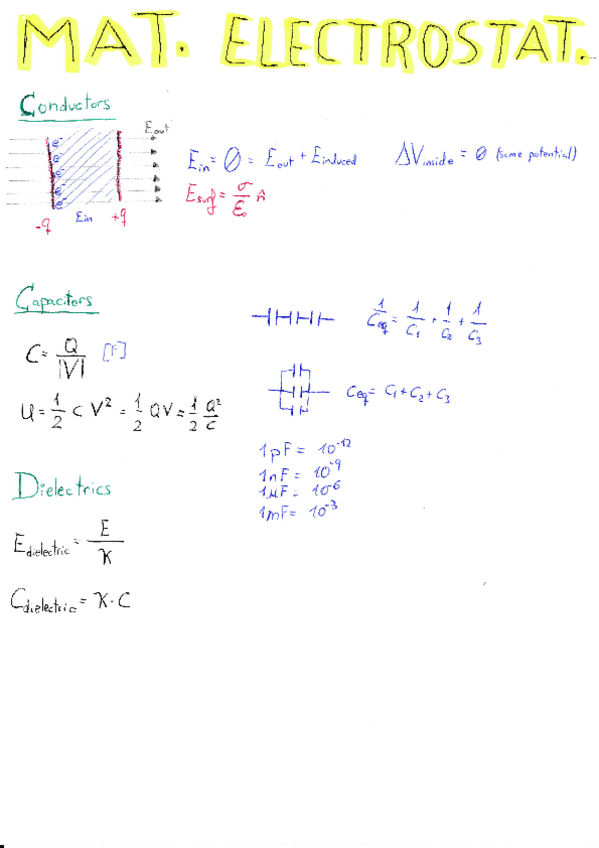 MAT. ELECTROSTAT.
Conductors
E_out
e⁻
e⁻
e⁻
e⁻
e⁻
e⁻
-q E_in +q
E_in = 0 = E_out + E_induced
ΔV_inside = 0 (same potential)
E_surf = σ/ε₀ n̂
Capacitors
C = Q/|V| [F]
U = 1/2 C V² = 1/2 QV = 1/2 Q²/C
1/C_eq = 1/C₁ + 1/C₂ + 1/C₃
C_eq = C₁ + C₂ + C₃
1pF = 10⁻¹²
1nF = 10⁻⁹
1μF = 10⁻⁶
1mF = 10⁻³
Dielectrics
E_dielectric = E/K
C_dielectric = K · C